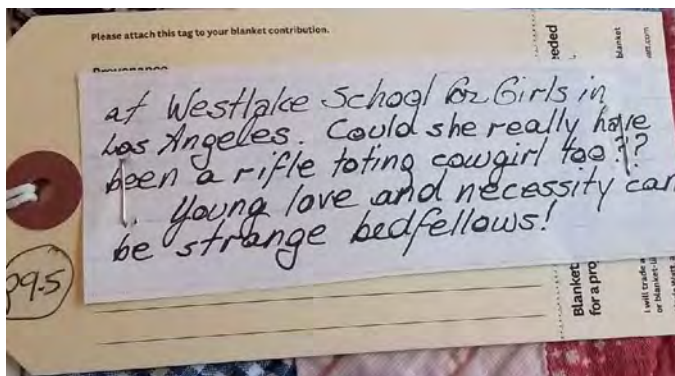 Please attach this tag to your blanket contribution.
Provenance
at Westlake School for Girls in
Los Angeles. Could she really have
been a rifle toting cowgirl too??
. Young love and necessity can
be strange bedfellows!
29.5
eeded
blanket
att.com
Blanket
for a pro
I will trade a
or blanket-li